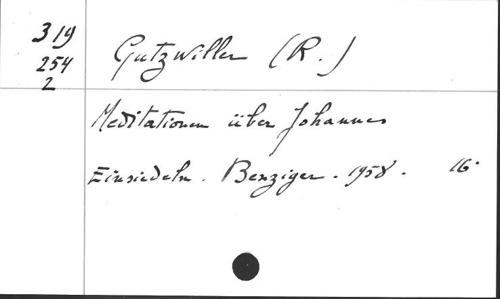 319
254
2
Gutzwiller (R.)
Meditationen über Johannes
Einsiedeln. Benziger. 1958. 16°